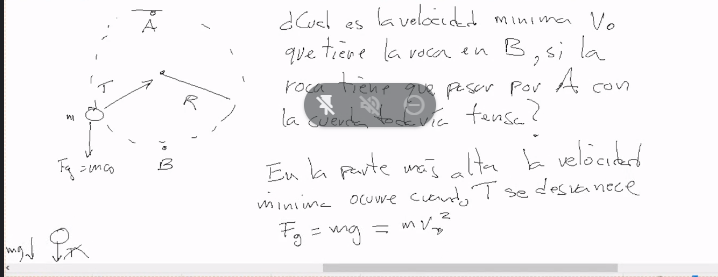 A
¿Cual es la velocidad minima V₀
que tiene la roca en B, si la
T
R
roca tiene que pasar por A con
m
la cuerda todavía tensa?
Fg = mg
B
En la parte más alta la velocidad
minima ocurre cuando T se desvanece
Fg = mg = m V²
mg